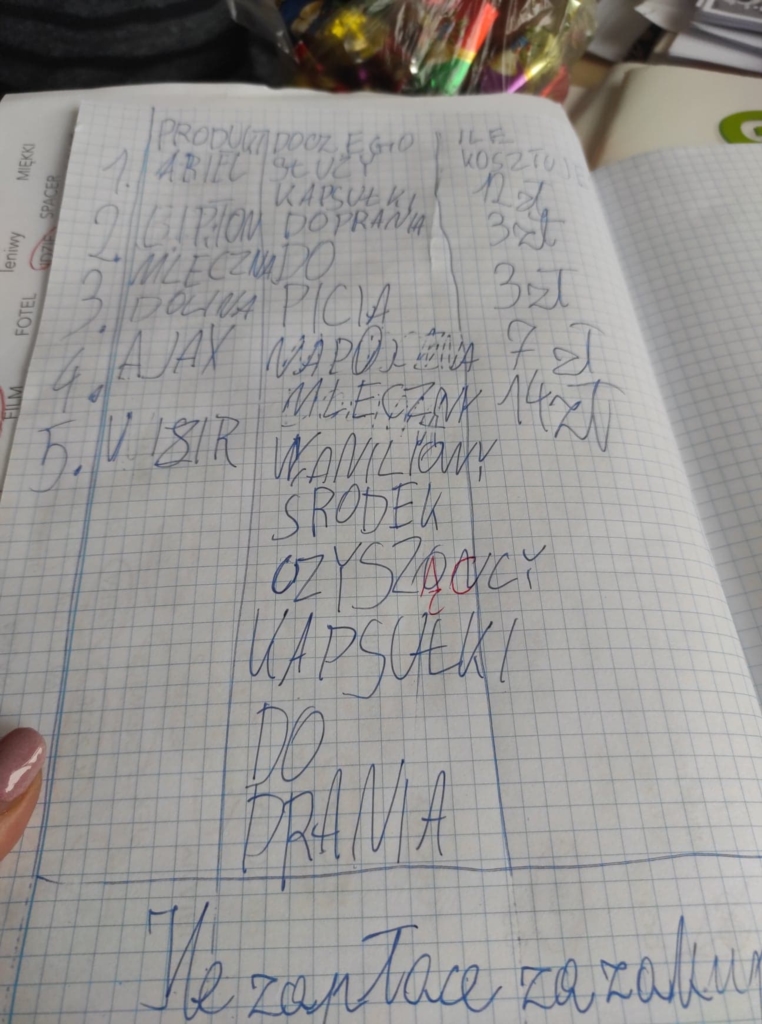 PRODUKT DO CZEGO ILE
1. ARIEL SŁUŻY KOSZTUJE
KAPSUŁKI 12 zł
2. LIPTON DO PRANIA 3 zł
MLECZNA DO
3. DOLINA PICIA 3 zł
4. AJAX NAPÓJ 7 zł
MLECZNY 14 zł
5. VIZIR WANILIOWY
SRODEK
CZYSZĄCY
KAPSUŁKI
DO
PRANIA
Ile zapłace za zaku
MIĘKKI
SPACER
leniwy
FOTEL
FILM